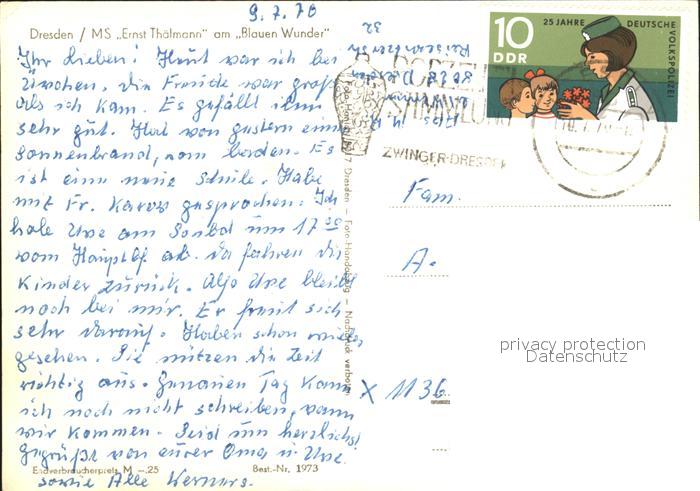 9.7.70
Dresden / MS „Ernst Thälmann" am „Blauen Wunder"
Ihr Lieben! Heut war ich bei
Uwchen, die Freude war groß
als ich kam. Es gefällt ihm
sehr gut. Hat von gestern ein
Sonnenbrand, vom baden. Es
ist eine neue Schule. Habe
mit Fr. gesprochen. Ich
hole Uwe am Sonbd um 17 30
vom Hauptbf ab. da fahren die
Kinder zurück. Also Uwe bleibt
noch bei mir. Er freut sich
sehr darauf. Haben schon
gesehen. Sie nützen die Zeit
richtig aus. Genauen Tag kann
ich noch nicht schreiben, wann
wir kommen. Seid nun herzlichst
gegrüßt von eurer Oma u. Uwe.
sowie Alle Werners.
Endverbraucherpreis M –.25
Best.-Nr. 1973
Dresden – Foto-Handabzug – Nachdruck verboten
32
10
DDR
25 JAHRE DEUTSCHE
VOLKSPOLIZEI
ZWINGER-DRESDEN
Fam.
A.
X 1136
privacy protection
Datenschutz